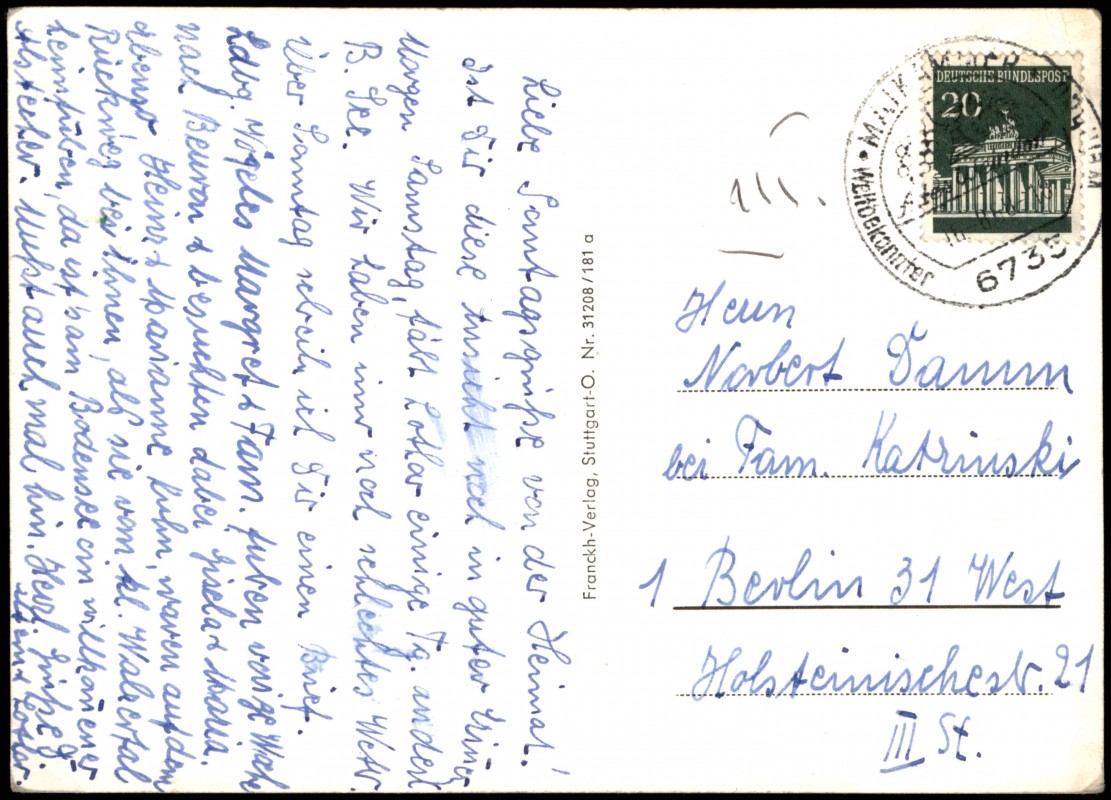 Liebe Sonntagsgrüße von der Heimat!
Ist Dir diese Ansicht noch in guter Erinng.
Morgen Samstag, fährt Lothar einige Tg. an den
B. See. Wir haben immer noch schlechtes Wettr.
Über Sonntag schreib ich Dir einen Brief.
Ldbg. Vögeles Margret & Fam. fuhren vorige Woche
nach Beuron & besuchten dabei Gisela & Maria.
ebenso Heinz & Marianne Kuhn, waren auf dem
Rückweg bei ihnen, als sie vom kl. Walsertal
heimfuhren, da ist's am Bodensee ein willkomener
Abstecher. Mußt auch mal hin. Herzl. Grüße
& Lothar.
Franckh-Verlag, Stuttgart-O. Nr. 31208/181 a
DEUTSCHE BUNDESPOST
20
MAIKAMMER
Weltbekannter
6735
Herrn
Norbert Damm
bei Fam. Katzinski
1 Berlin 31 West
Holsteinischestr. 21
III St.